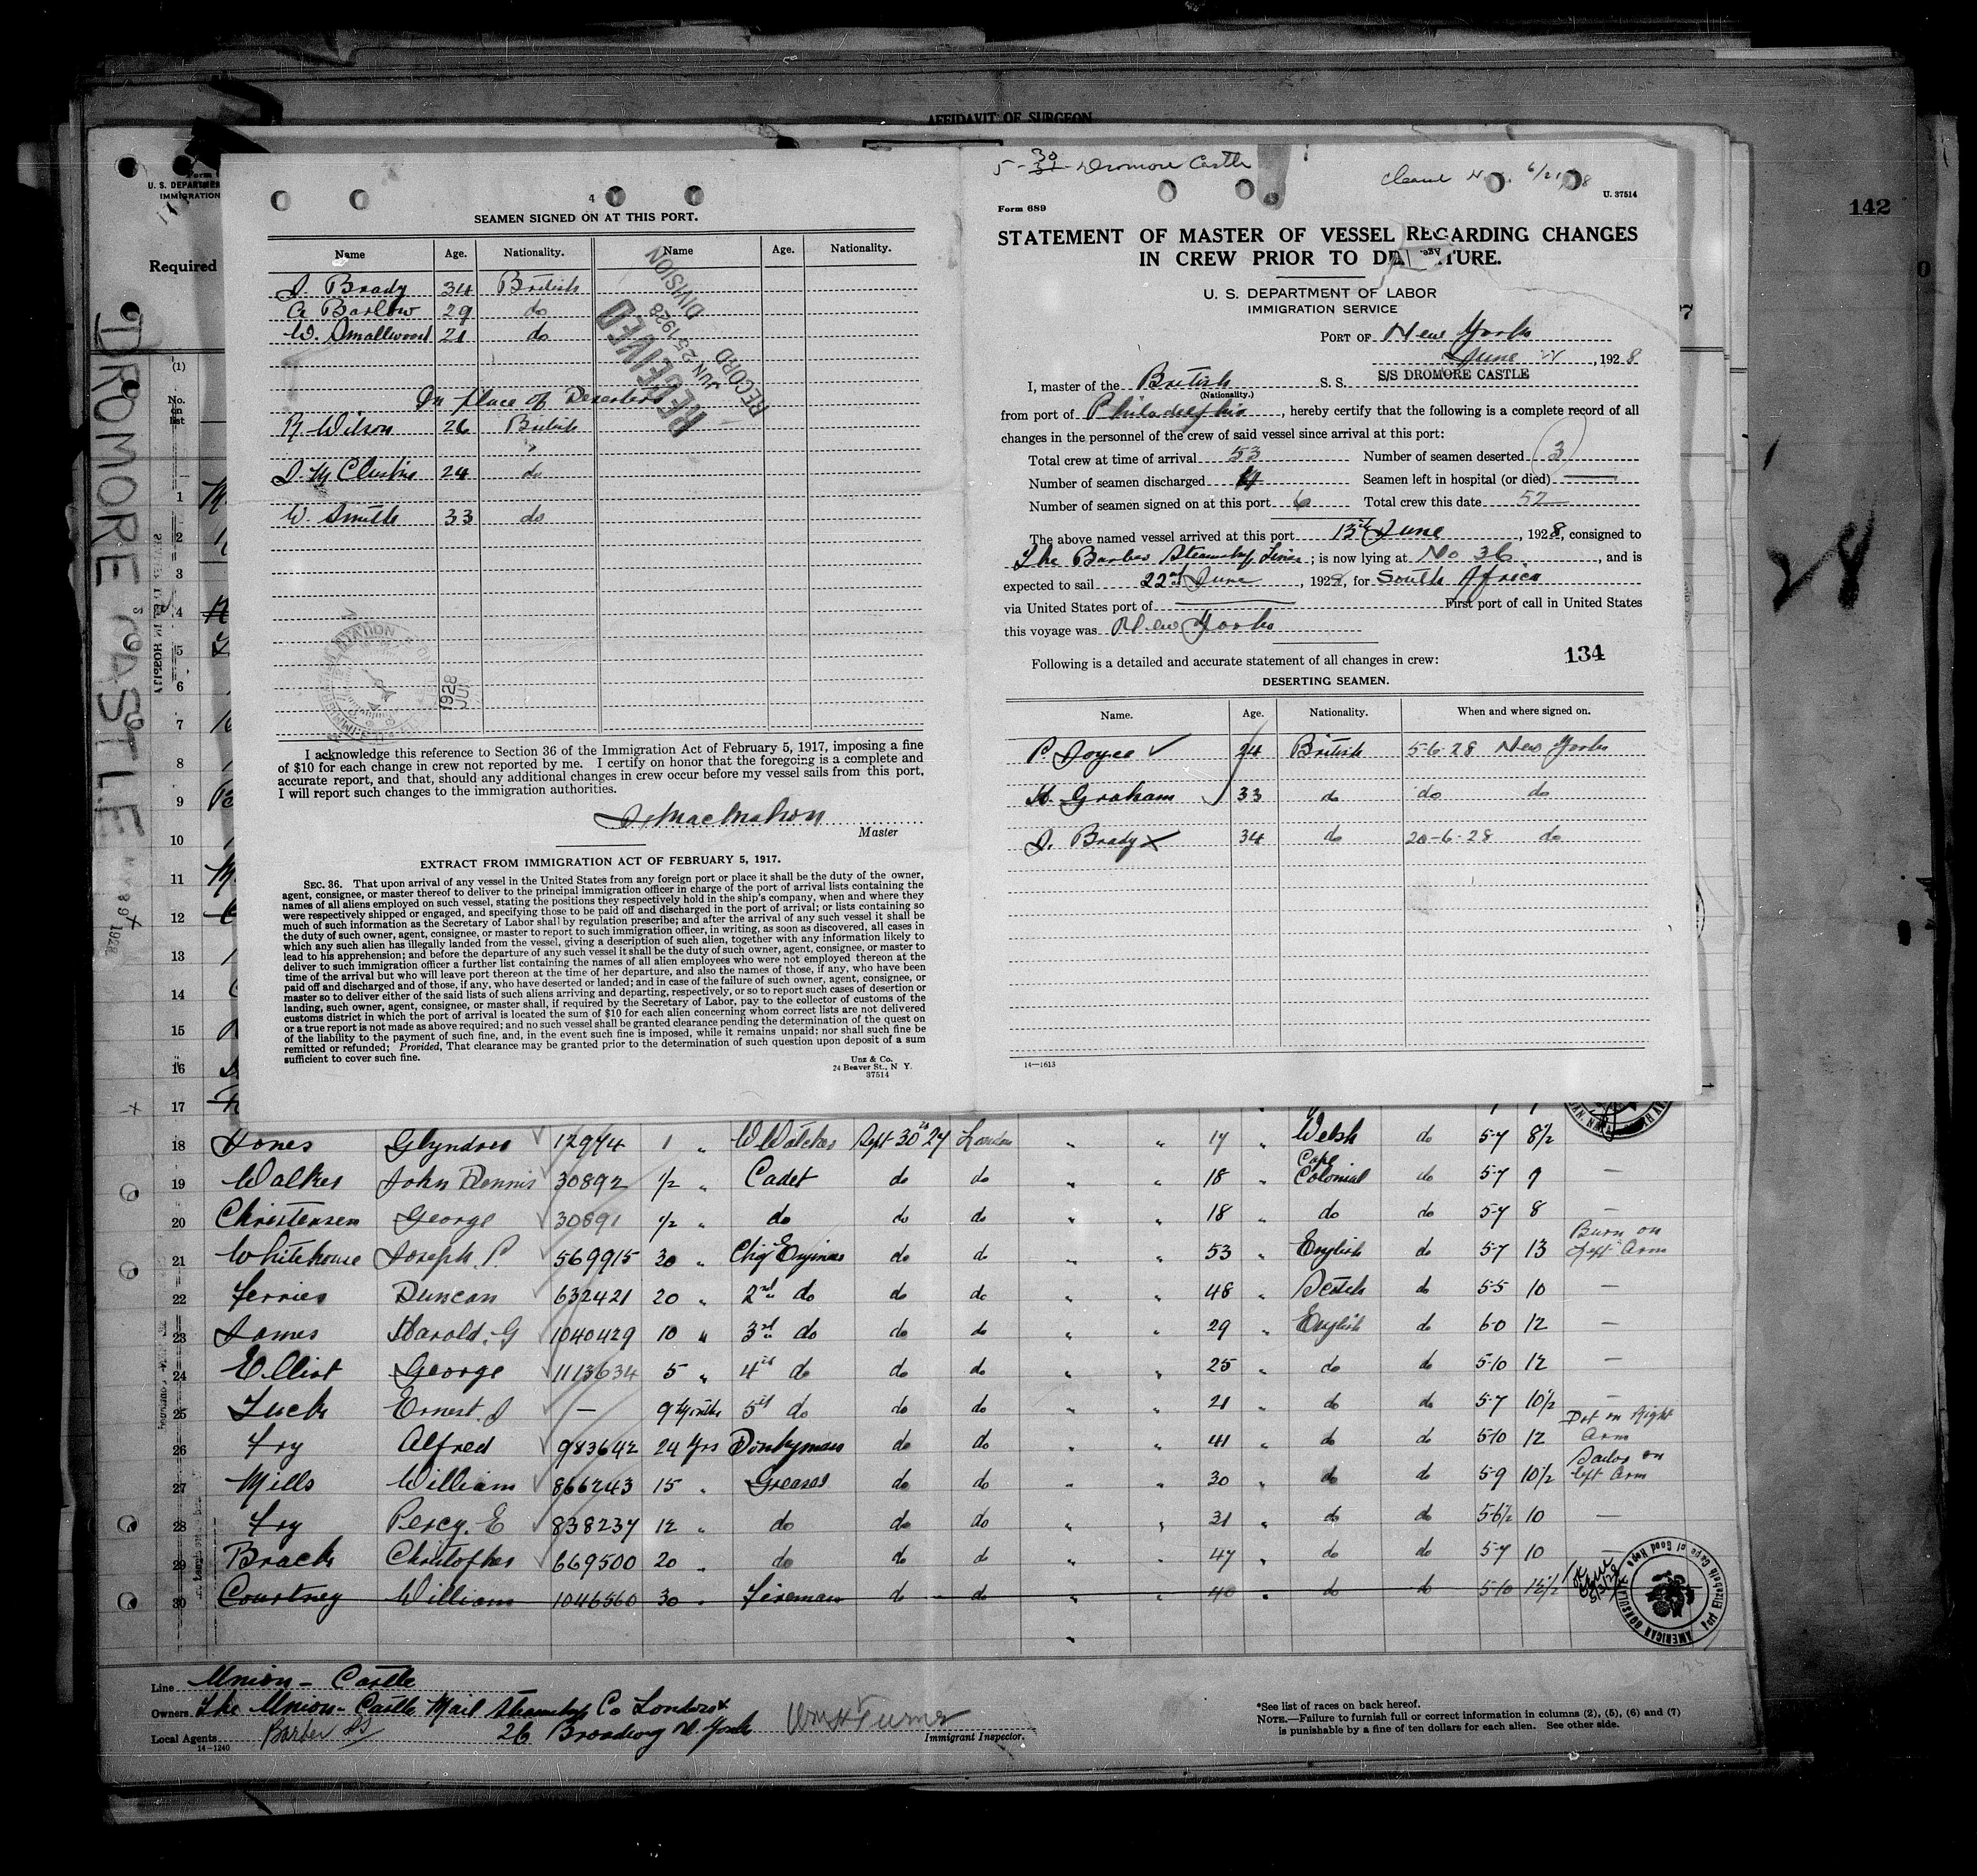 AFFIDAVIT OF SURGEON
142
28
DROMORE CASTLE
Form
U. S. DEPARTMENT
IMMIGRATION
Required
(1)
No. on list
4
SEAMEN SIGNED ON AT THIS PORT.
Name Age. Nationality. Name Age. Nationality.
J. Brady 34 British
A Barlow 29 do
W. Smallwood 21 do
In place of Deserters
R Wilson 26 British
24 do
W. Smith 33 do
RECEIVED
JUN 25 1928
RECORD DIVISION
I acknowledge this reference to Section 36 of the Immigration Act of February 5, 1917, imposing a fine
of $10 for each change in crew not reported by me. I certify on honor that the foregoing is a complete and
accurate report, and that, should any additional changes in crew occur before my vessel sails from this port,
I will report such changes to the immigration authorities.
J. MacMahon
Master
EXTRACT FROM IMMIGRATION ACT OF FEBRUARY 5, 1917.
SEC. 36. That upon arrival of any vessel in the United States from any foreign port or place it shall be the duty of the owner,
agent, consignee, or master thereof to deliver to the principal immigration officer in charge of the port of arrival lists containing the
names of all aliens employed on such vessel, stating the positions they respectively hold in the ship's company, when and where they
were respectively shipped or engaged, and specifying those to be paid off and discharged in the port of arrival; or lists containing so
much of such information as the Secretary of Labor shall by regulation prescribe; and after the arrival of any such vessel it shall be
the duty of such owner, agent, consignee, or master to report to such immigration officer, in writing, as soon as discovered, all cases in
which any such alien has illegally landed from the vessel, giving a description of such alien, together with any information likely to
lead to his apprehension; and before the departure of any such vessel it shall be the duty of such owner, agent, consignee, or master to
deliver to such immigration officer a further list containing the names of all alien employees who were not employed thereon at the
time of the arrival but who will leave port thereon at the time of her departure, and also the names of those, if any, who have been
paid off and discharged and of those, if any, who have deserted or landed; and in case of the failure of such owner, agent, consignee, or
master so to deliver either of the said lists of such aliens arriving and departing, respectively, or so to report such cases of desertion or
landing, such owner, agent, consignee, or master shall, if required by the Secretary of Labor, pay to the collector of customs of the
customs district in which the port of arrival is located the sum of $10 for each alien concerning whom correct lists are not delivered
or a true report is not made as above required; and no such vessel shall be granted clearance pending the determination of the quest on
of the liability to the payment of such fine, and, in the event such fine is imposed, while it remains unpaid; nor shall such fine be
remitted or refunded; Provided, That clearance may be granted prior to the determination of such question upon deposit of a sum
sufficient to cover such fine.
Unz & Co.
24 Beaver St., N Y.
37514
5-30 31 Dromore Castle
6/21/28
U. 37514
Form 689
STATEMENT OF MASTER OF VESSEL REGARDING CHANGES
IN CREW PRIOR TO DEPARTURE.
U. S. DEPARTMENT OF LABOR
IMMIGRATION SERVICE
PORT OF New York
June 21, 1928
I, master of the British S. S. S/S DROMORE CASTLE
(Nationality.)
from port of Philadelphia, hereby certify that the following is a complete record of all
changes in the personnel of the crew of said vessel since arrival at this port:
Total crew at time of arrival 53 Number of seamen deserted 3
Number of seamen discharged 4 Seamen left in hospital (or died)
Number of seamen signed on at this port 6 Total crew this date 52
The above named vessel arrived at this port 13th June, 1928, consigned to
The Barber Steamship Lines; is now lying at No 36, and is
expected to sail 22nd June, 1928, for South Africa
via United States port of First port of call in United States
this voyage was New York
Following is a detailed and accurate statement of all changes in crew:
134
DESERTING SEAMEN.
Name. Age. Nationality. When and where signed on.
P. Joyce ✓ 24 British 5-6-28 New York
H. Graham ✓ 33 do do do
J. Brady x 34 do 20-6-28 do
14—1613
18 Jones Glyndwr 12974 1 " W Watcher Sept 30th 27 London " " 17 " Welsh do 5-7 8½
19 Walker John Dennis 30892 1/2 " Cadet do do " " 18 " Cape Colonial do 5-7 9 —
20 Christensen George 30891 1/2 " do do do " " 18 " do do 5-7 8 —
21 Whitehouse Joseph P. 569915 30 " Chief Engineer do do " " 53 " English do 5-7 13 Burn on left Arm
22 Ferries Duncan 632421 20 " 2nd do do do " " 48 " Scotch do 5-5 10 —
23 James Harold. G 1040429 10 " 3rd do do do " " 29 " English do 6-0 12 —
24 Elliot George 1113634 5 " 4th do do do " " 25 " do do 5-10 12 —
25 Luck Ernest. J — 9 Months 5th do do do " " 21 " do do 5-7 10½ —
26 Fry Alfred 983642 24 Yrs Donkyman do do " " 41 " do do 5-10 12 Dot on Right Arm
27 Mills William 866243 15 " Greaser do do " " 30 " do do 5-9 10½ Sailor on left Arm
28 Fry Percy. E 838237 12 " do do do " " 31 " do do 5-6½ 10 —
29 Brack Christopher 669500 20 " do do do " " 47 " do do 5-7 10 —
30 Courtney William 1046560 30 " Fireman do do " " 40 " do do 5-10 12½
AMERICAN CONSULATE Port Elizabeth Cape of Good Hope
Line Union - Castle
Owners The Union-Castle Mail Steamship Co London
Local Agents Barber SS 26 Broadway N York
14-1240
Wm H Turner
Immigrant Inspector.
*See list of races on back hereof.
NOTE.—Failure to furnish full or correct information in columns (2), (5), (6) and (7)
is punishable by a fine of ten dollars for each alien. See other side.